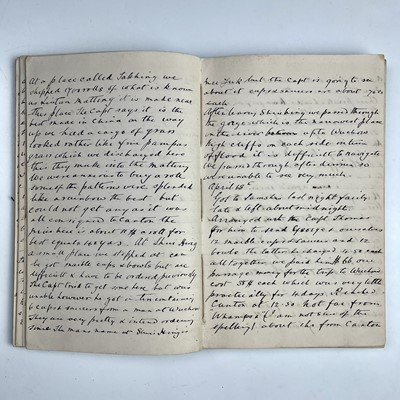 At a place called Takhing we
shipped 1700 rolls of what is known
as Lintan Matting it is made near
this place the Capt says it is the
best made in China on the way
up we had a cargo of grass
looked rather like fine pampas
grass which we discharged here
this they make into the Matting
we were anxious to buy a roll
some of the patterns were splendid
but we
could not get any as it was
all consigned to Canton the
price here is about 11 $ a roll for
best equals 40 yds. At Shui Hing
a small place we stopped at can
be got marble cups & bowls but are
difficult & have to be ordered previously
The Capt tried to get some here but was
unable however he got us two containing
6 cups & saucers from a man at Wuchow
They are very pretty & intend ordering
some. The mans name at Shui Hing is
but the Capt is going to see
about it cups & saucers are about 70 cts
each
After leaving Shuihing we passed through
the gorge which is the narrowest place
in the river between up to Wuchow
high cliffs on each side when
it is difficult to navigate
we passed through after dinner so
were unable to see very much
April 18th
Got to Samshui last night fairly
late & left about midnight
Arranged with the Capt Thomas
for him to send George & ourselves
12 marble cups & saucers and 12
bowls the latter being
all together we paid him $66 our
passage money for the trip to Wuchow
cost each which was very little
practically for 4 days Reached
Canton at 12-30 Not far from
Whampoa (I am not sure of the
spelling) about from Canton